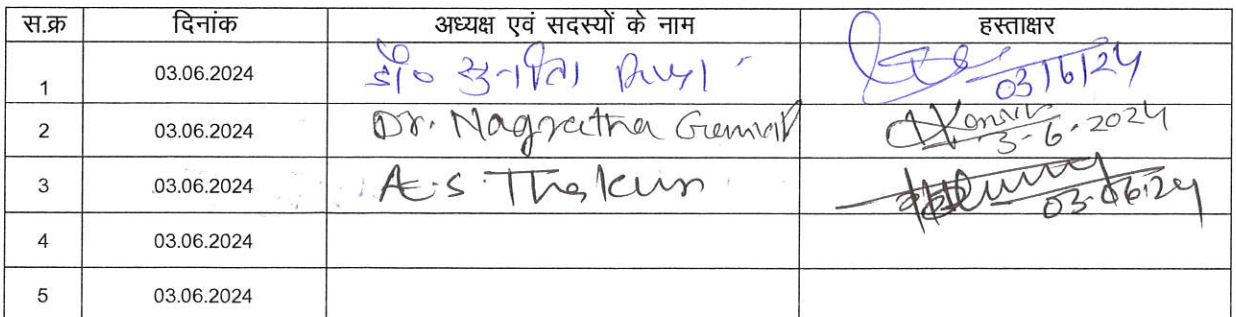 स.क्र दिनांक अध्यक्ष एवं सदस्यों के नाम हस्ताक्षर
1 03.06.2024 डॉ० सुनीता 03/6/24
2 03.06.2024 Dr. Nagratna 3-6-2024
3 03.06.2024 A.S. Thakur 03.06.24
4 03.06.2024
5 03.06.2024